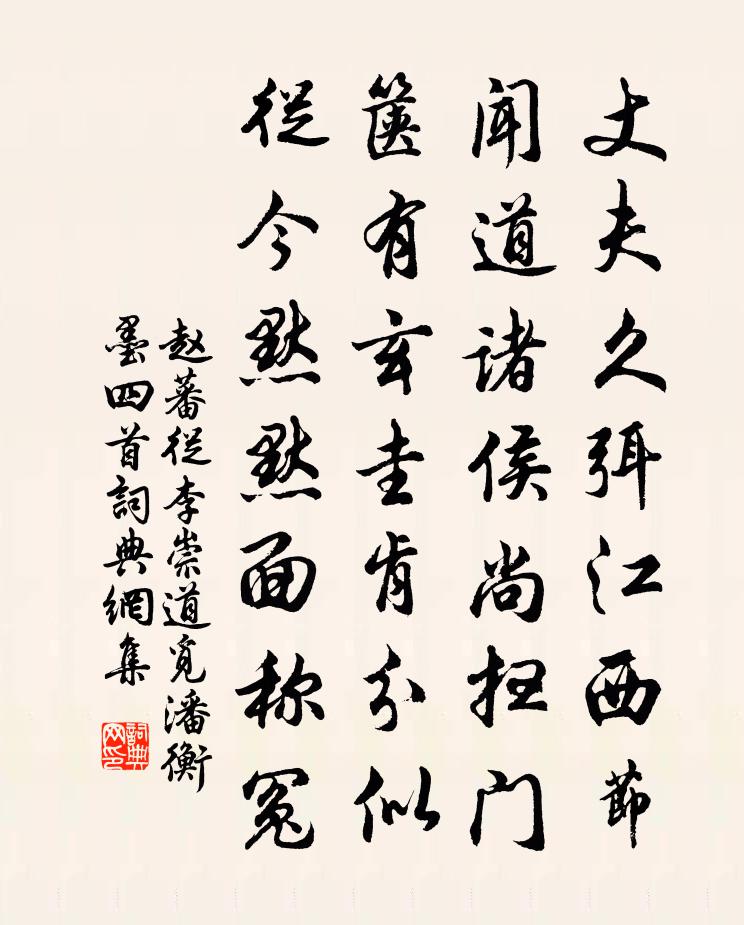 丈夫久弭江西節
聞道諸侯尚扫门
箧有玄圭肯分似
從今默默面称冤
赵蕃從李崇道覓潘衡
墨四首詞典網集
詞典网印